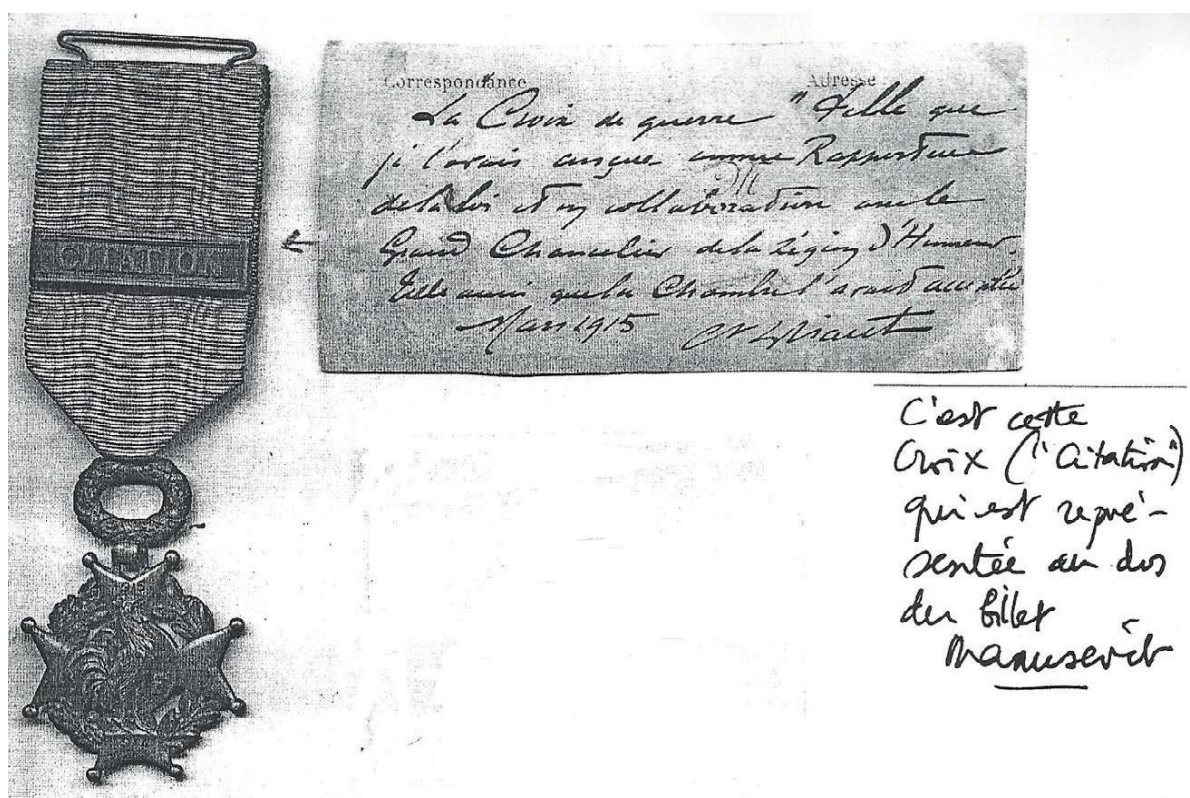 CITATION
Correspondance
Adresse
La Croix de guerre "Telle que
je l'avais conçue comme Rapporteur
de la loi et en collaboration avec le
Grand Chancelier de la Légion d'Honneur.
Telle aussi que la Chambre l'avait
Mars 1915
C'est cette
Croix ("Citation")
qui est repré-
sentée au dos
du billet
Manuscrit